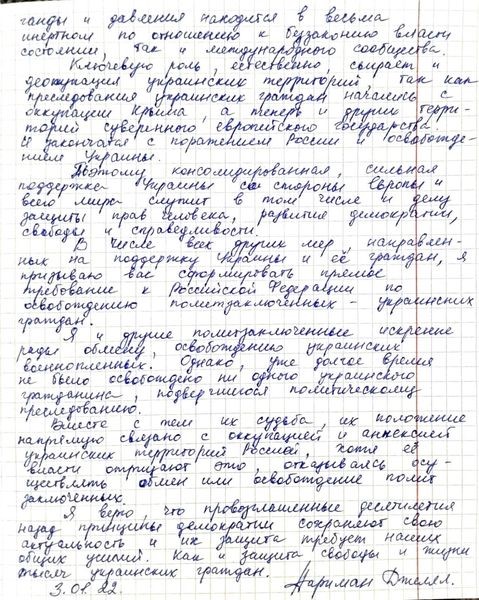 ганды и давления находится в весьма
инертном по отношению к беззаконию власти
состоянии, так и международного сообщества.
Ключевую роль, естественно, сыграет и
деоккупация украинских территорий так как
преследования украинских граждан начались с
оккупации Крыма, а теперь и других терри-
торий суверенного европейского государства.
И закончатся с поражением России и освобожде-
нием Украины.
Поэтому консолидированная, сильная
поддержка Украины со стороны Европы и
всего мира служит в том числе и делу
защиты прав человека, развития демократии,
свободы и справедливости.
В числе всех других мер, направлен-
ных на поддержку Украины и её граждан, я
призываю вас сформировать прямое
требование к Российской Федерации по
освобождению политзаключенных - украинских
граждан.
Я и другие политзаключенные искренне
рады обмену, освобождению украинских
военнопленных. Однако, уже долгое время
не было освобождено ни одного украинского
гражданина, подвергшегося политическому
преследованию.
Вместе с тем их судьба, их положение
напрямую связано с оккупацией и аннексией
украинских территорий Россией, хотя её
власти отрицают это, отказываясь осу-
ществлять обмен или освобождение полит
заключенных.
Я верю, что провозглашенные десятилетия
назад принципы демократии сохраняют свою
актуальность и их защита требует наших
общих усилий. Как и защита свободы и жизни
тысяч украинских граждан.
3.01.22. Нариман Джелял.